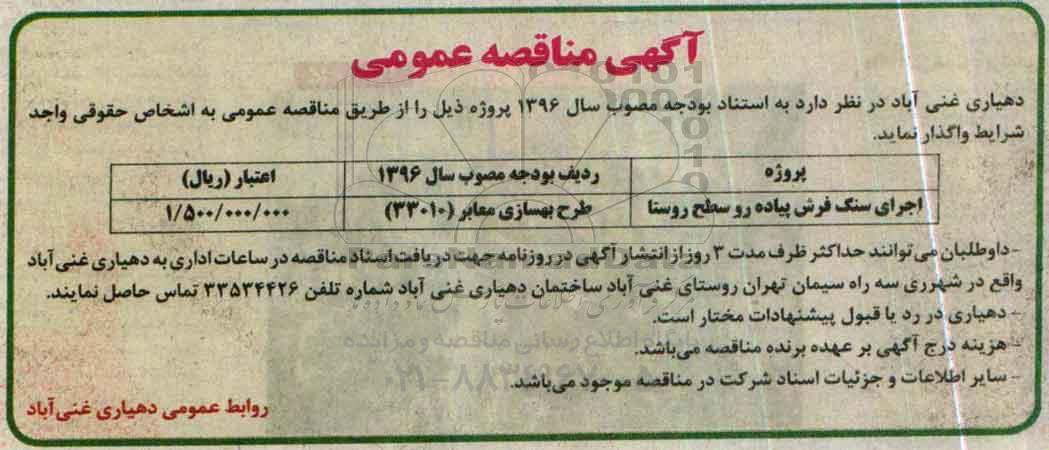 آگهی مناقصه عمومی
دهیاری غنی آباد در نظر دارد به استناد بودجه مصوب سال ۱۳۹۶ پروژه ذیل را از طریق مناقصه عمومی به اشخاص حقوقی واجد
شرایط واگذار نماید.
پروژه ردیف بودجه مصوب سال ۱۳۹۶ اعتبار (ریال)
اجرای سنگ فرش پیاده رو سطح روستا طرح بهسازی معابر (۳۳۰۱۰) ۱/۵۰۰/۰۰۰/۰۰۰
- داوطلبان می‌توانند حداکثر ظرف مدت ۳ روز از انتشار آگهی در روزنامه جهت دریافت اسناد مناقصه در ساعات اداری به دهیاری غنی‌آباد
واقع در شهرری سه راه سیمان تهران روستای غنی آباد ساختمان دهیاری غنی آباد شماره تلفن ۳۳۵۳۴۴۲۶ تماس حاصل نمایند.
- دهیاری در رد یا قبول پیشنهادات مختار است.
- هزینه درج آگهی بر عهده برنده مناقصه می‌باشد.
- سایر اطلاعات و جزئیات اسناد شرکت در مناقصه موجود می‌باشد.
روابط عمومی دهیاری غنی‌آباد